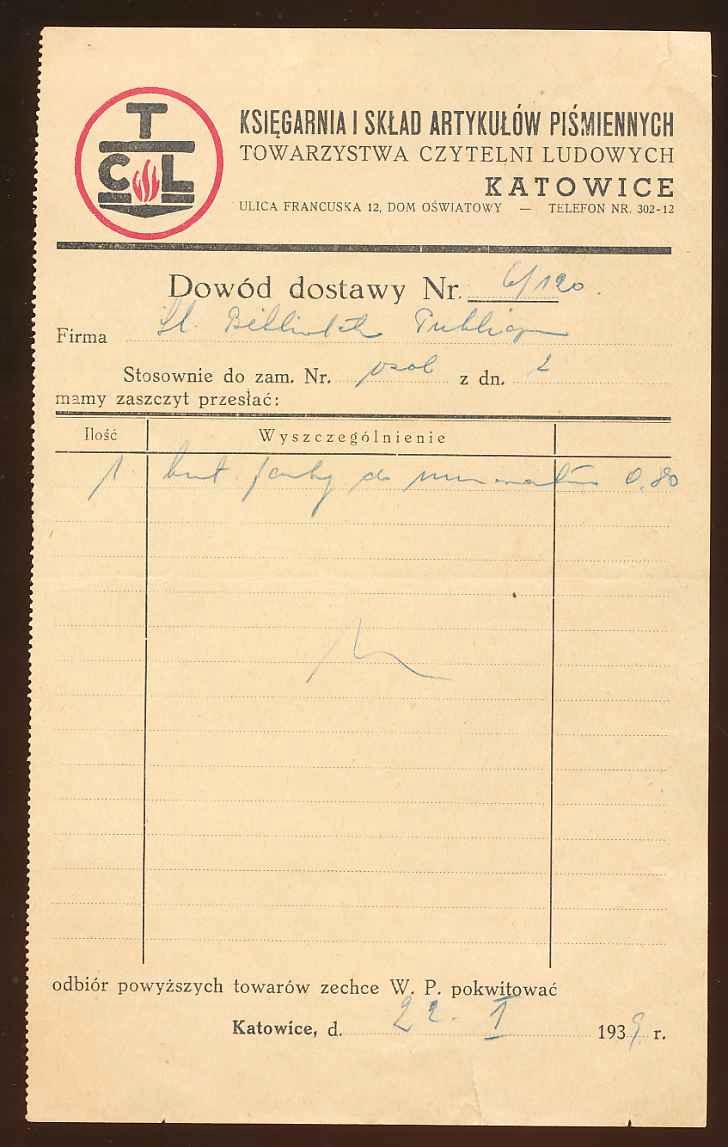 T
C L
KSIĘGARNIA I SKŁAD ARTYKUŁÓW PIŚMIENNYCH
TOWARZYSTWA CZYTELNI LUDOWYCH
KATOWICE
ULICA FRANCUSKA 12, DOM OŚWIATOWY — TELEFON NR. 302-12
Dowód dostawy Nr. 6/120.
Firma Śl. Biblioteka
Stosownie do zam. Nr. osob z dn.
mamy zaszczyt przesłać:
Ilość Wyszczególnienie
1 but farby do 0,80
odbiór powyższych towarów zechce W. P. pokwitować
Katowice, d. 22. I 1939 r.